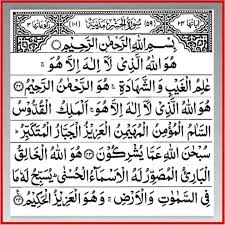 اٰيَاتُهَا ٢٤ (٥٩) سُوْرَةُ الْحَشْرِ مَدَنِيَّةٌ (١٠١) رُكُوْعَاتُهَا ٣
بِسْمِ اللّٰهِ الرَّحْمٰنِ الرَّحِيْمِ
هُوَ اللّٰهُ الَّذِيْ لَآ اِلٰهَ اِلَّا هُوَ
عٰلِمُ الْغَيْبِ وَالشَّهَادَةِ هُوَ الرَّحْمٰنُ الرَّحِيْمُ
هُوَ اللّٰهُ الَّذِيْ لَآ اِلٰهَ اِلَّا هُوَ اَلْمَلِكُ الْقُدُّوْسُ
السَّلٰمُ الْمُؤْمِنُ الْمُهَيْمِنُ الْعَزِيْزُ الْجَبَّارُ الْمُتَكَبِّرُ
سُبْحٰنَ اللّٰهِ عَمَّا يُشْرِكُوْنَ ٢٣ هُوَ اللّٰهُ الْخَالِقُ
الْبَارِئُ الْمُصَوِّرُ لَهُ الْاَسْمَآءُ الْحُسْنٰى يُسَبِّحُ لَهٗ مَا
فِي السَّمٰوٰتِ وَالْاَرْضِ وَهُوَ الْعَزِيْزُ الْحَكِيْمُ ٢٤